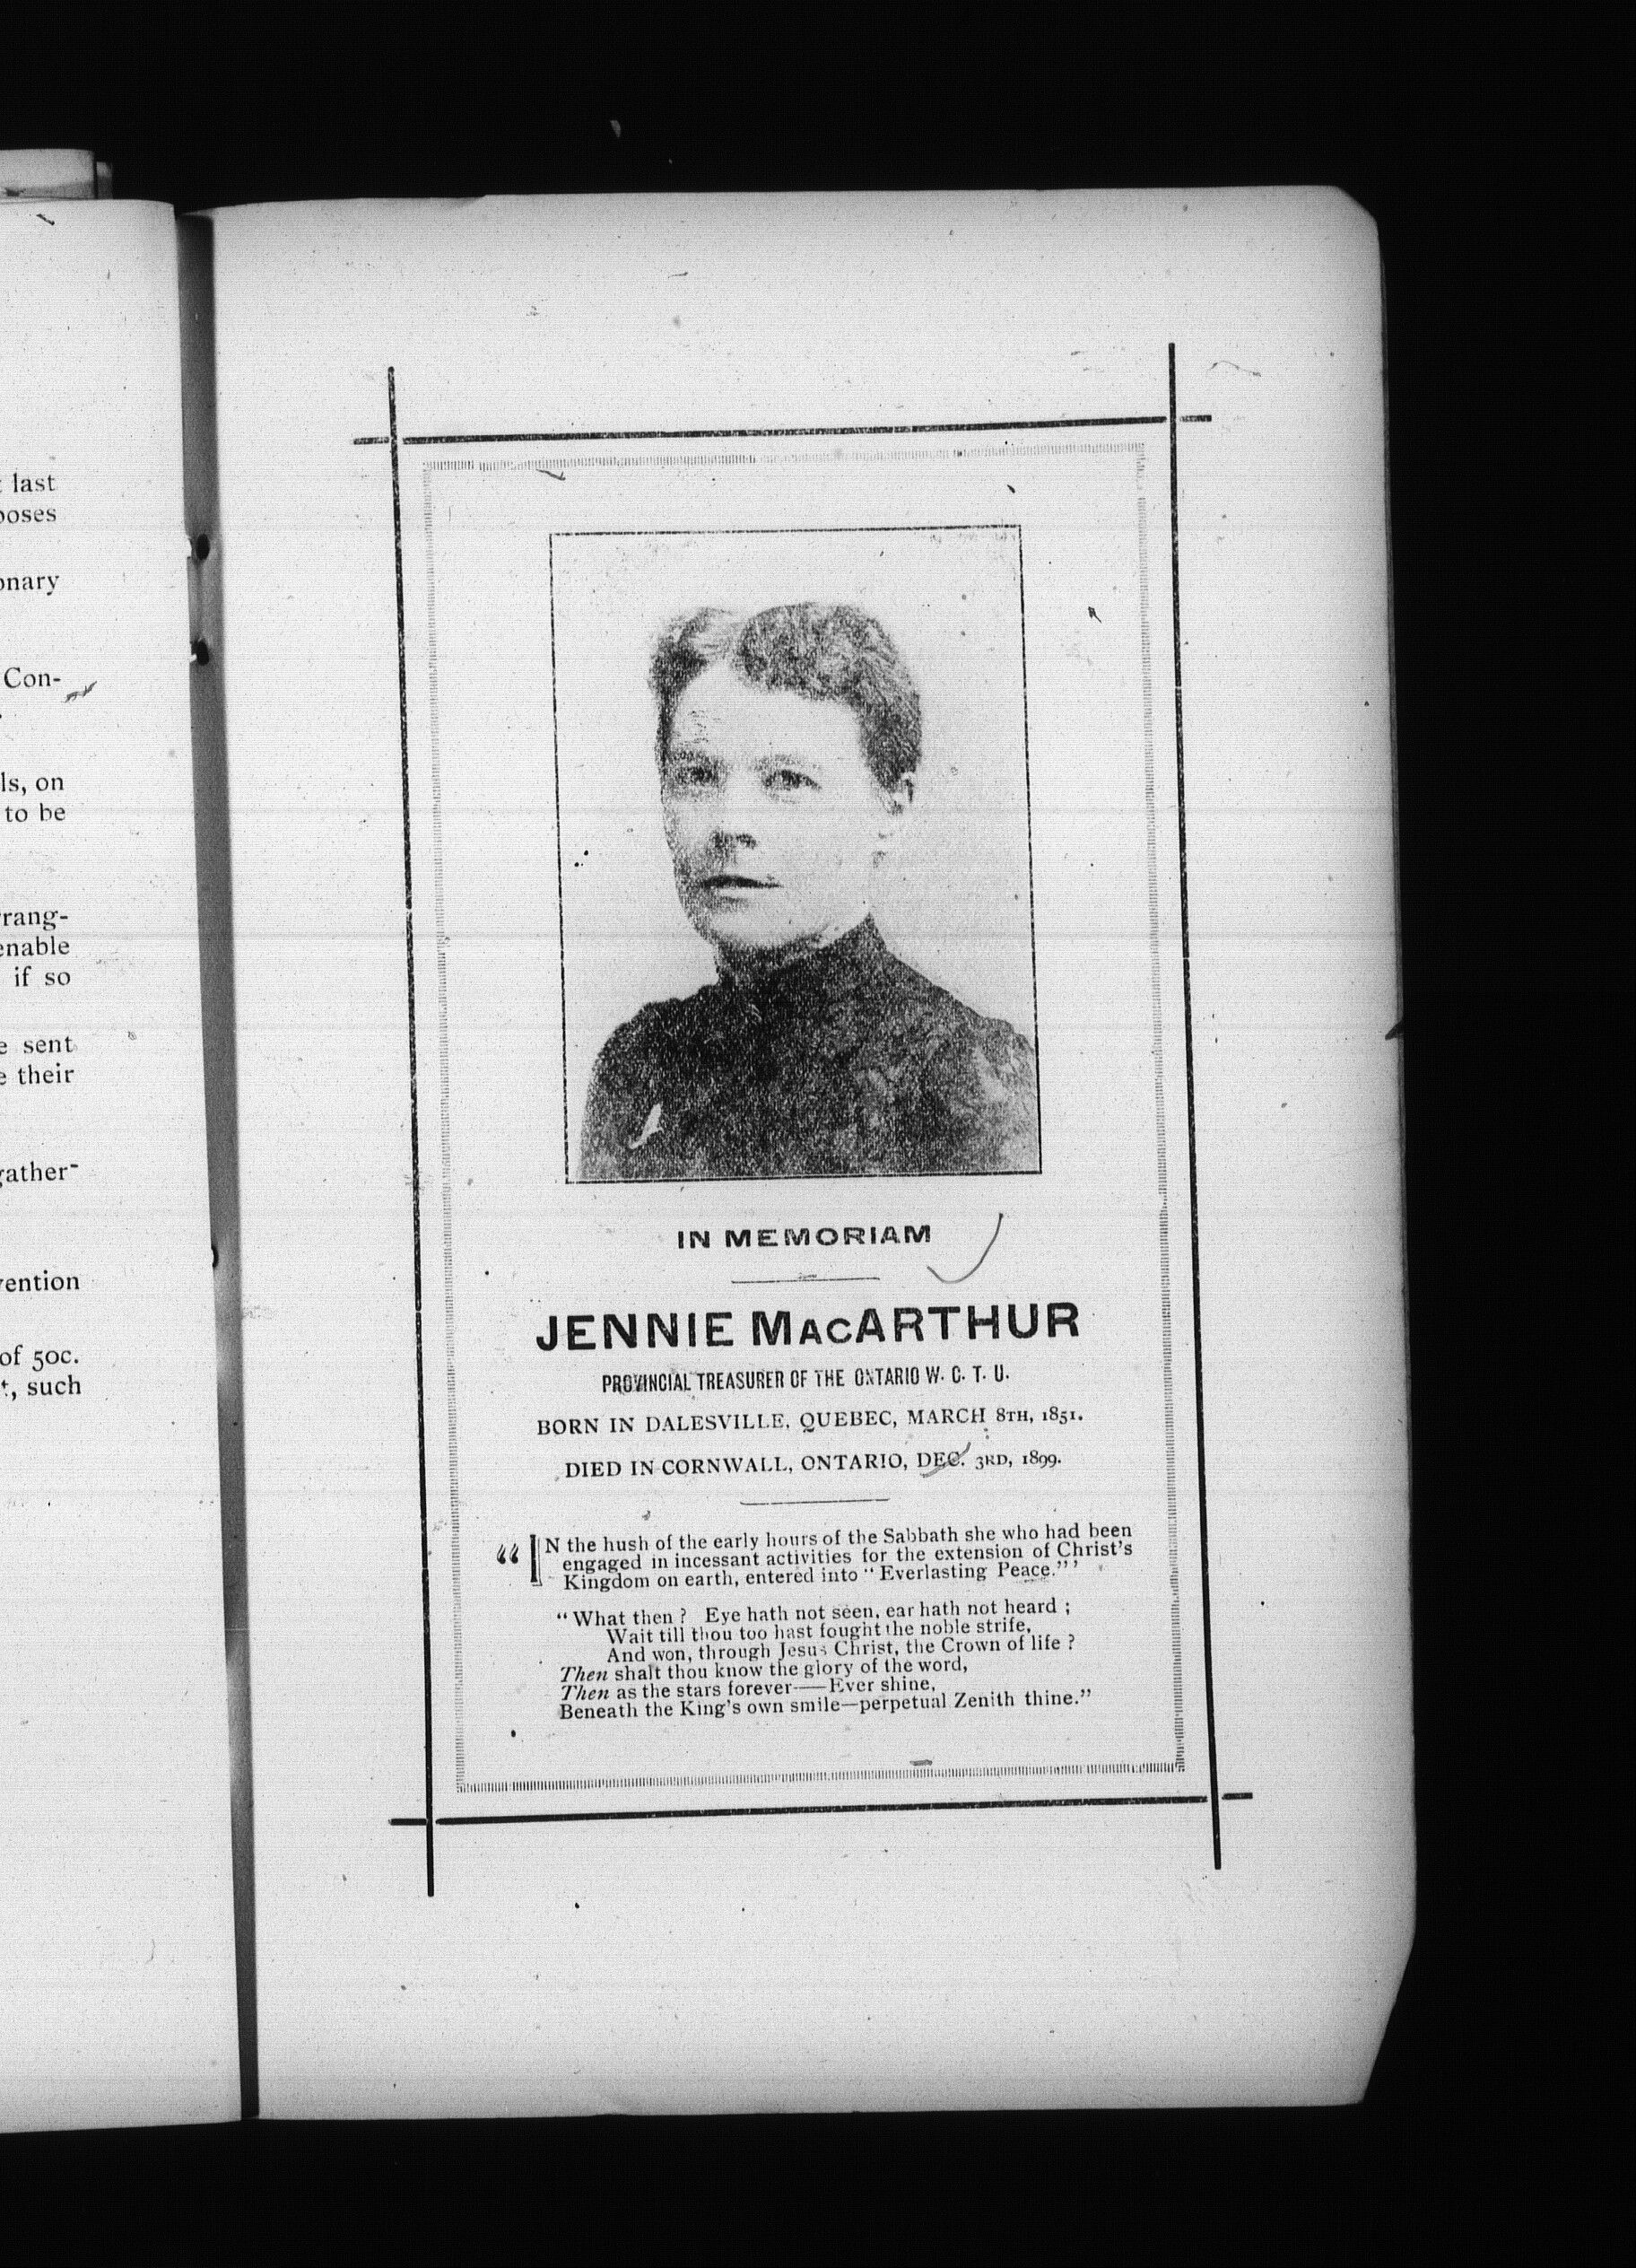 last
poses
onary
Con-
ls, on
to be
rang-
enable
if so
e sent
e their
gather-
vention
of 50c.
t, such
IN MEMORIAM
JENNIE MACARTHUR
PROVINCIAL TREASURER OF THE ONTARIO W. C. T. U.
BORN IN DALESVILLE, QUEBEC, MARCH 8TH, 1851.
DIED IN CORNWALL, ONTARIO, DEC. 3RD, 1899.
“IN the hush of the early hours of the Sabbath she who had been
engaged in incessant activities for the extension of Christ's
Kingdom on earth, entered into “Everlasting Peace.”’
“What then? Eye hath not seen, ear hath not heard;
Wait till thou too hast fought the noble strife,
And won, through Jesus Christ, the Crown of life?
Then shalt thou know the glory of the word,
Then as the stars forever——Ever shine,
Beneath the King's own smile—perpetual Zenith thine.”